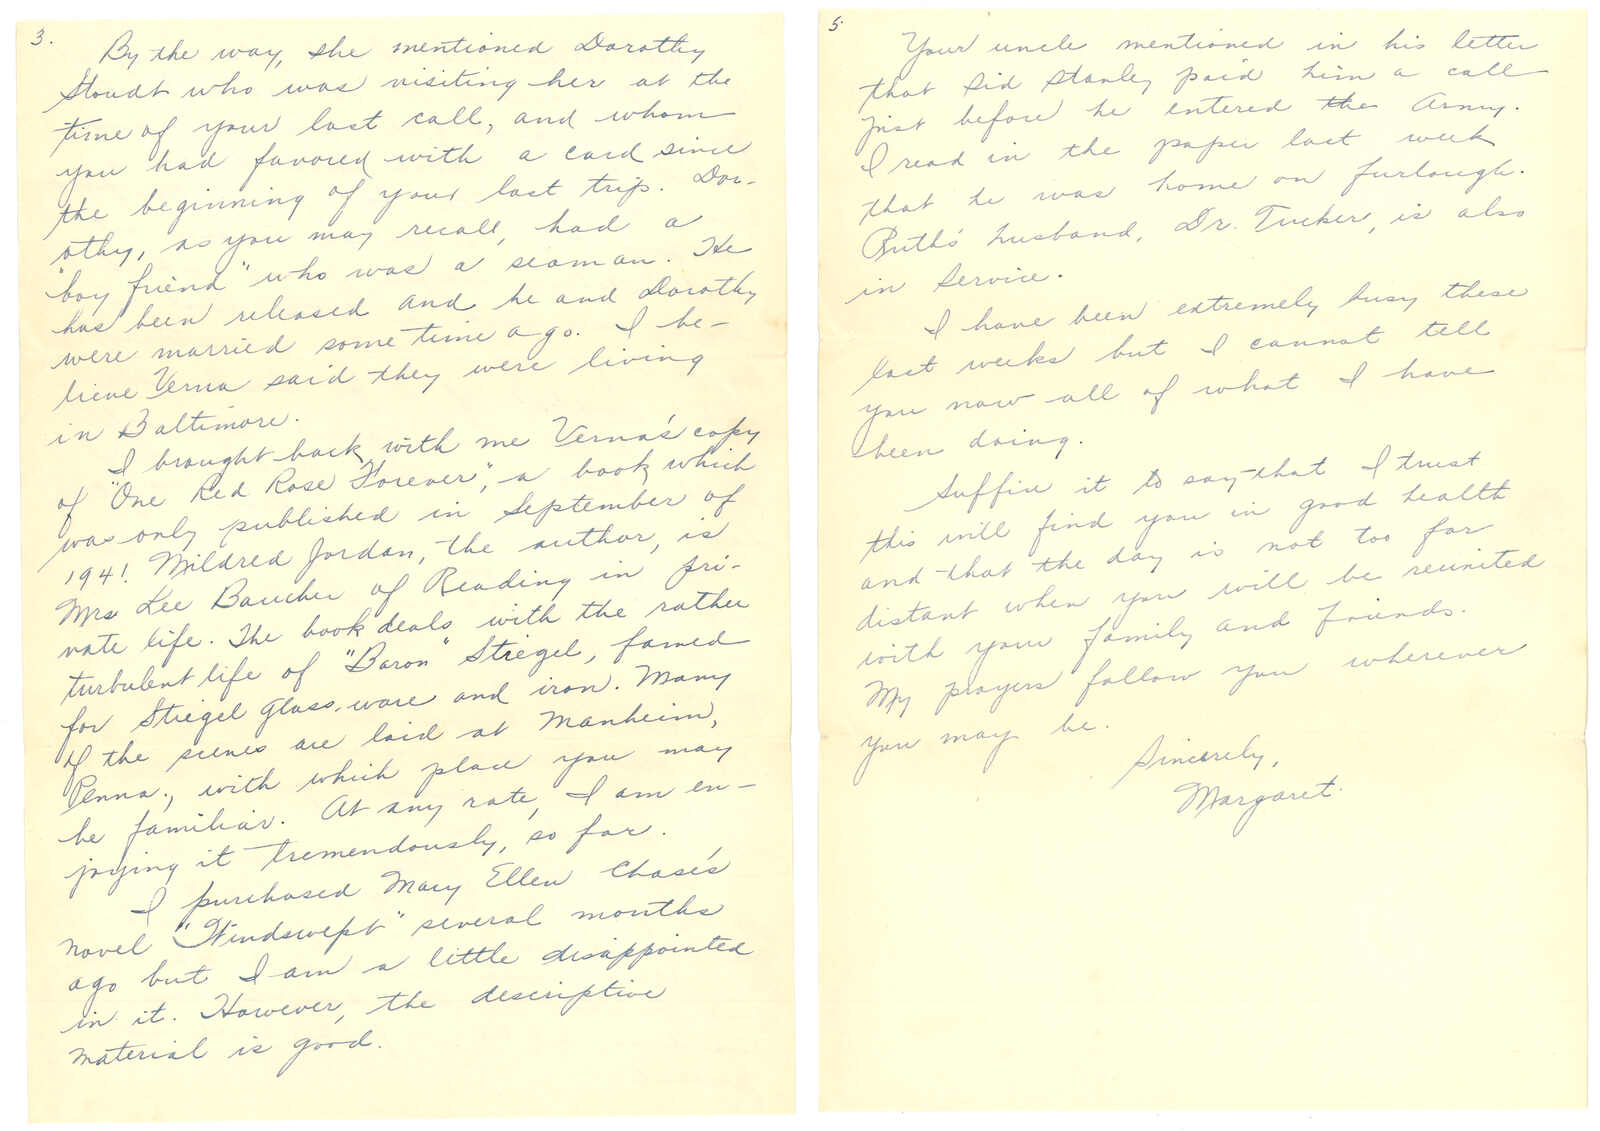 3.
By the way, she mentioned Dorothy
Stoudt who was visiting her at the
time of your last call, and whom
you had favored with a card since
the beginning of your last trip. Dor-
othy, as you may recall, had a
"boy friend" who was a seaman. He
has been released and he and Dorothy
were married some time ago. I be-
lieve Verna said they were living
in Baltimore.
I brought back with me Verna's copy
of "One Red Rose Forever", a book which
was only published in September of
1941. Mildred Jordan, the author, is
Mrs Lee Baucher of Reading in pri-
vate life. The book deals with the rather
turbulent life of "Baron" Striegel, famed
for Striegel glass-ware and iron. Many
of the scenes are laid at Manheim,
Penna., with which place you may
be familiar. At any rate, I am en-
joying it tremendously, so far.
I purchased Mary Ellen Chase's
novel "Windswept" several months
ago but I am a little disappointed
in it. However, the descriptive
material is good.
5.
Your uncle mentioned in his letter
that Sid Stanley paid him a call
just before he entered the Army.
I read in the paper last week
that he was home on furlough.
Ruth's husband, Dr. Tucker, is also
in Service.
I have been extremely busy these
last weeks but I cannot tell
you now all of what I have
been doing.
Suffice it to say that I trust
this will find you in good health
and that the day is not too far
distant when you will be reunited
with your family and friends.
My prayers follow you wherever
you may be.
Sincerely,
Margaret.